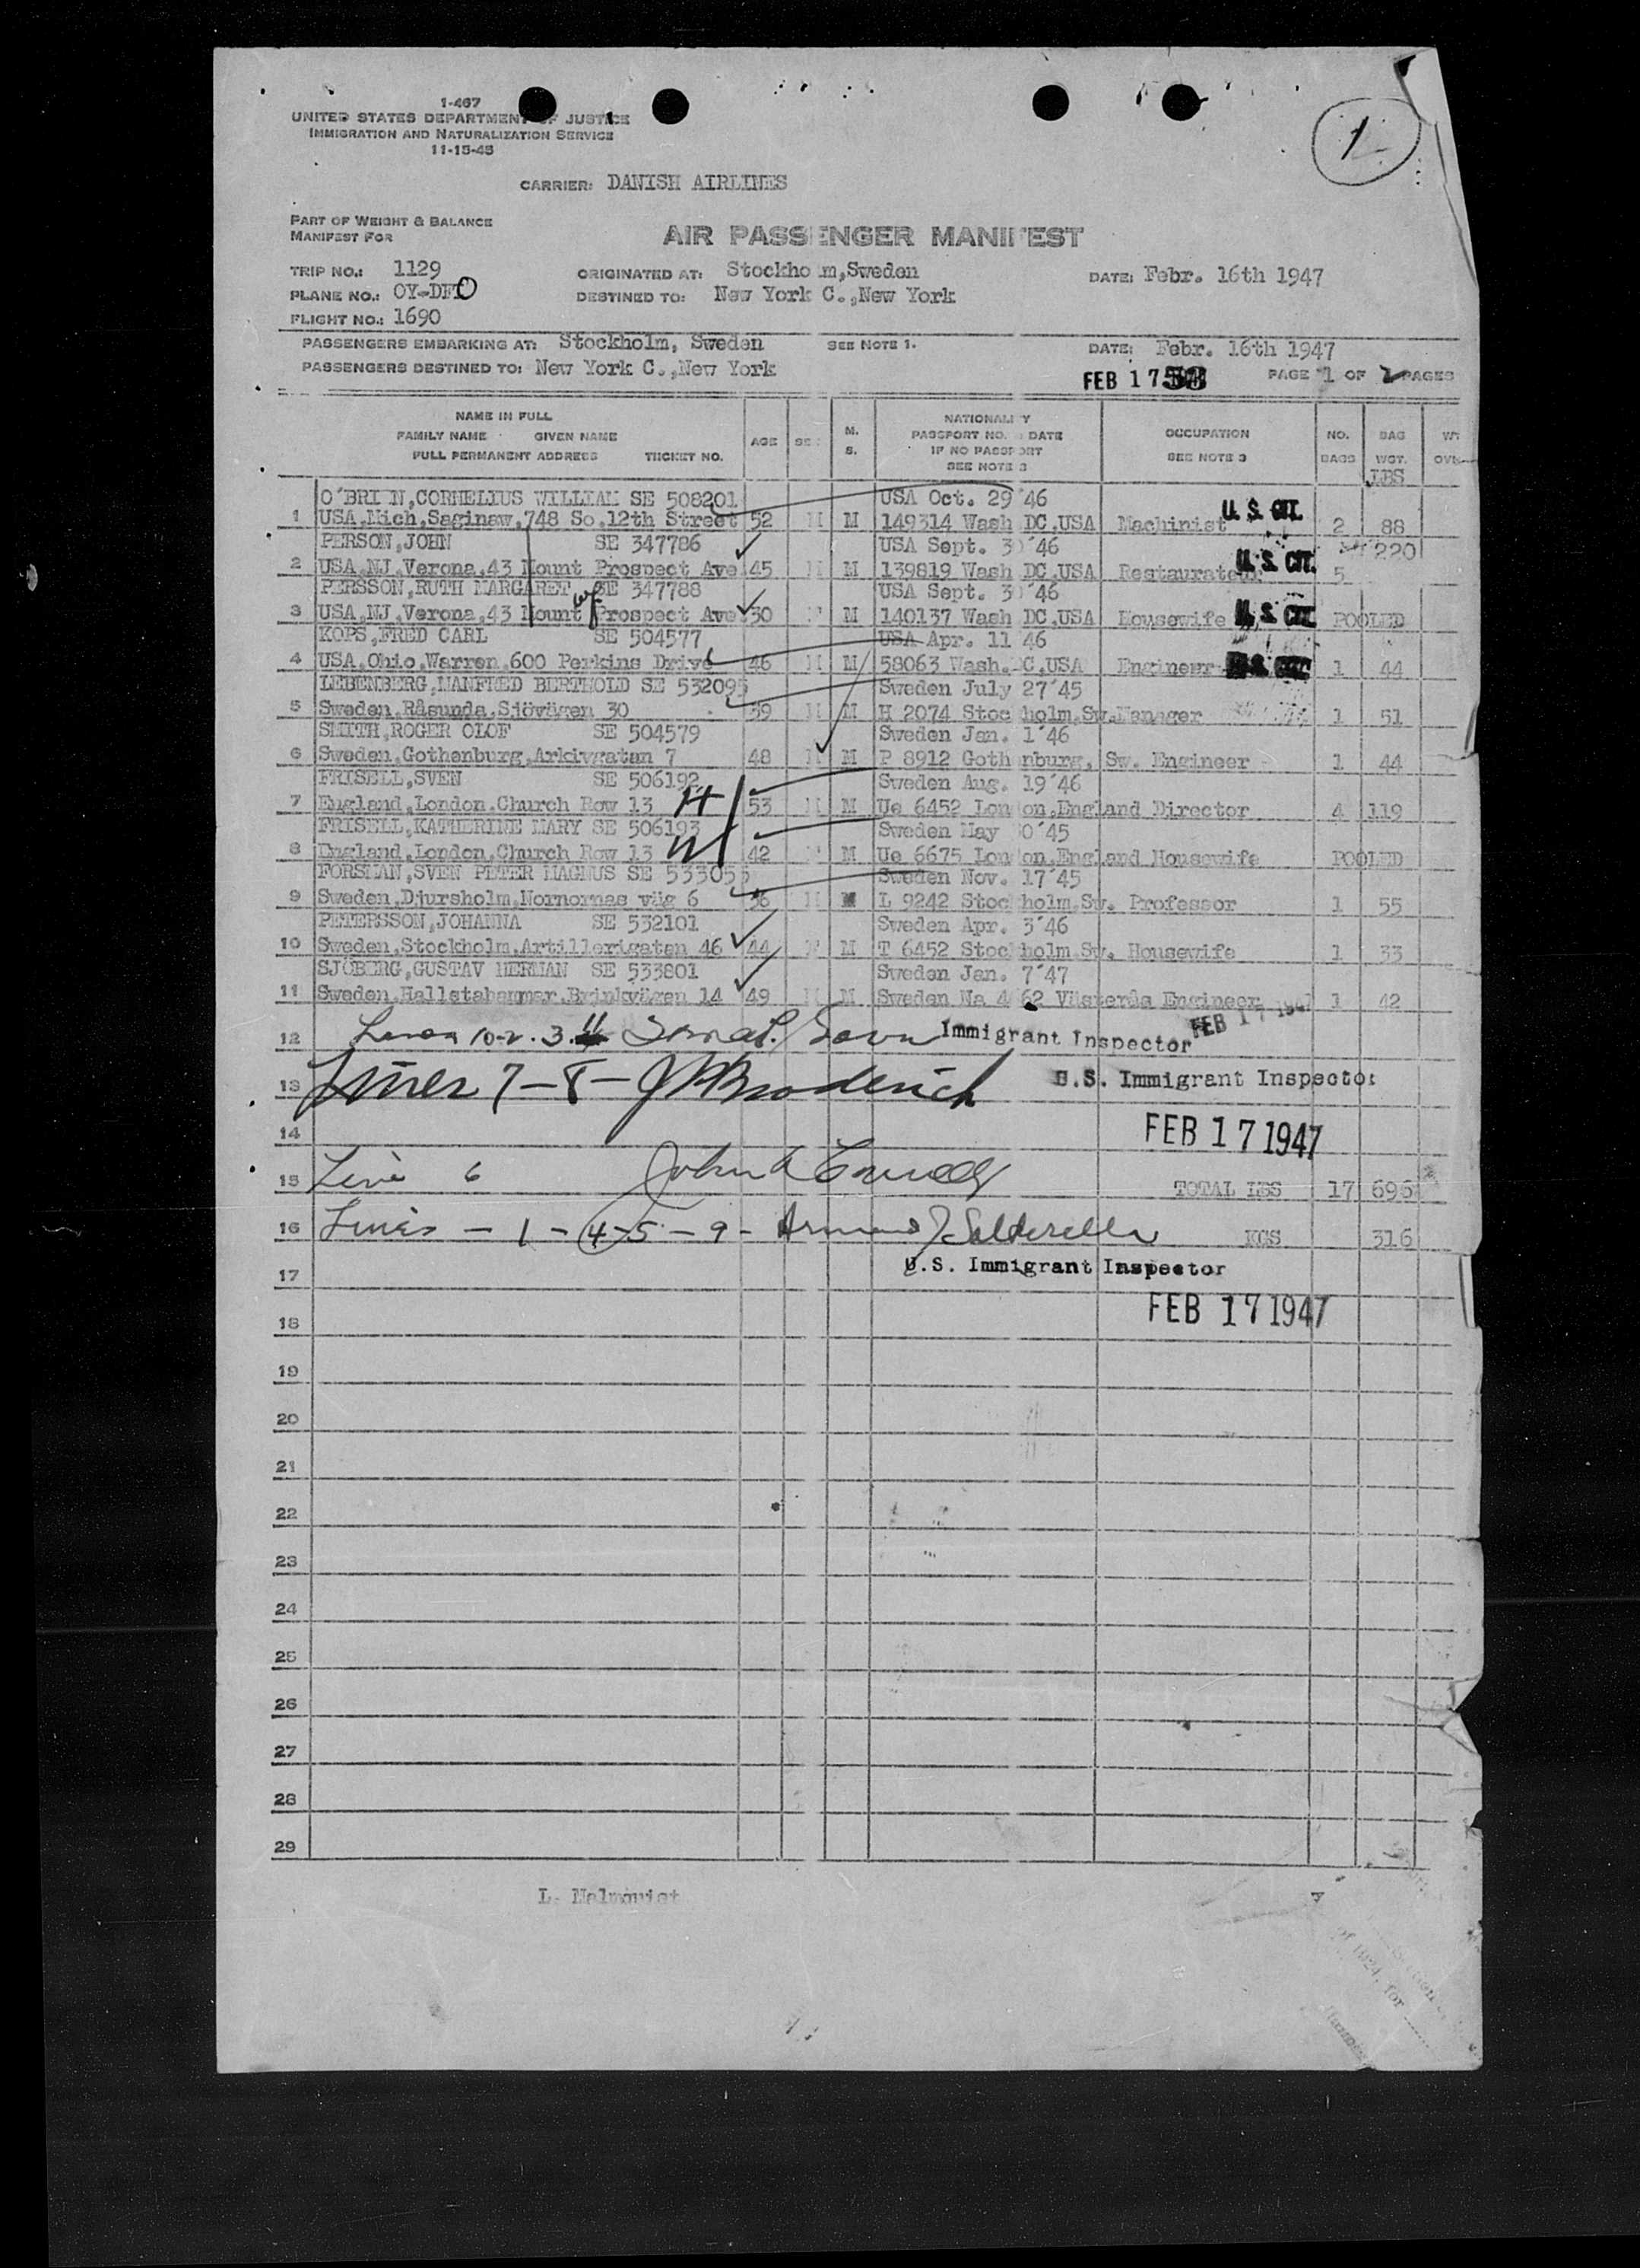 1
I-467
UNITED STATES DEPARTMENT OF JUSTICE
IMMIGRATION AND NATURALIZATION SERVICE
11-15-45
CARRIER: DANISH AIRLINES
PART OF WEIGHT & BALANCE
MANIFEST FOR
AIR PASSENGER MANIFEST
TRIP NO.: 1129 ORIGINATED AT: Stockholm,Sweden DATE: Febr. 16th 1947
PLANE NO.: OY-DFO DESTINED TO: New York C.,New York
FLIGHT NO.: 1690
PASSENGERS EMBARKING AT: Stockholm, Sweden SEE NOTE 1. DATE: Febr. 16th 1947
PASSENGERS DESTINED TO: New York C.,New York FEB 17 PAGE 1 OF 2 PAGES
NAME IN FULL
FAMILY NAME GIVEN NAME
FULL PERMANENT ADDRESS TICKET NO. AGE SEX M. S. NATIONALITY PASSPORT NO. DATE IF NO PASSPORT SEE NOTE 3 OCCUPATION SEE NOTE 3 NO. BAGS BAG WGT. LBS WT
O'BRIEN,CORNELIUS WILLIAM SE 508201 USA Oct. 29'46
1 USA,Mich,Saginaw,748 So,12th Street 52 M M 149314 Wash DC,USA Machinist U. S. CIT. 2 88
PERSON,JOHN SE 347786 USA Sept. 30'46 220
2 USA,NJ,Verona,43 Mount Prospect Ave 45 M M 139819 Wash DC,USA Restaurateur U. S. CIT. 5
PERSSON,RUTH MARGARET wf SE 347788 USA Sept. 30'46
3 USA,NJ,Verona,43 Mount Prospect Ave 30 F M 140137 Wash DC,USA Housewife U. S. CIT. POOLED
KOPS,FRED CARL SE 504577 USA Apr. 11'46
4 USA,Ohio,Warren,600 Perkins Drive 46 M M 58063 Wash.DC,USA Engineer U. S. CIT. 1 44
LEBENBERG,MANFRED BERTHOLD SE 532095 Sweden July 27'45
5 Sweden,Råsunda,Sjövägen 30 39 M M H 2074 Stockholm,Sw.Manager 1 51
SMITH,ROGER OLOF SE 504579 Sweden Jan. 1'46
6 Sweden,Gothenburg,Arkivgatan 7 48 M M P 8912 Gothenburg, Sw. Engineer 1 44
FRISELL,SVEN SE 506192 Sweden Aug. 19'46
7 England,London,Church Row 13 H 53 M M Ue 6452 London,England Director 4 119
FRISELL,KATHERINE MARY SE 506193 Sweden May 30'45
8 England,London,Church Row 13 W 42 F M Ue 6675 London,England Housewife POOLED
FORSMAN,SVEN PETER MAGNUS SE 533055 Sweden Nov. 17'45
9 Sweden,Djursholm,Nornornas väg 6 36 M M L 9242 Stockholm,Sw. Professor 1 55
PETERSSON,JOHANNA SE 532101 Sweden Apr. 3'46
10 Sweden,Stockholm,Artillerigatan 46 44 F M T 6452 Stockholm,Sw. Housewife 1 33
SJÖBERG,GUSTAV HERMAN SE 533801 Sweden Jan. 7'47
11 Sweden,Hallstahammar,Brinkvägen 14 49 M M Sweden Na 62 Västerås Engineer 1 42
12 10-2.3.11 Immigrant Inspector FEB 17 1947
13 Lines 7-8- Broderick U.S. Immigrant Inspector
14 FEB 17 1947
15 Line 6 John TOTAL LBS 17 696
16 Lines - 1 - 4-5 - 9 - Armand J Salderella KGS 316
17 U.S. Immigrant Inspector
18 FEB 17 1947
19
20
21
22
23
24
25
26
27
28
29
L. Malmquist
of 1924, for